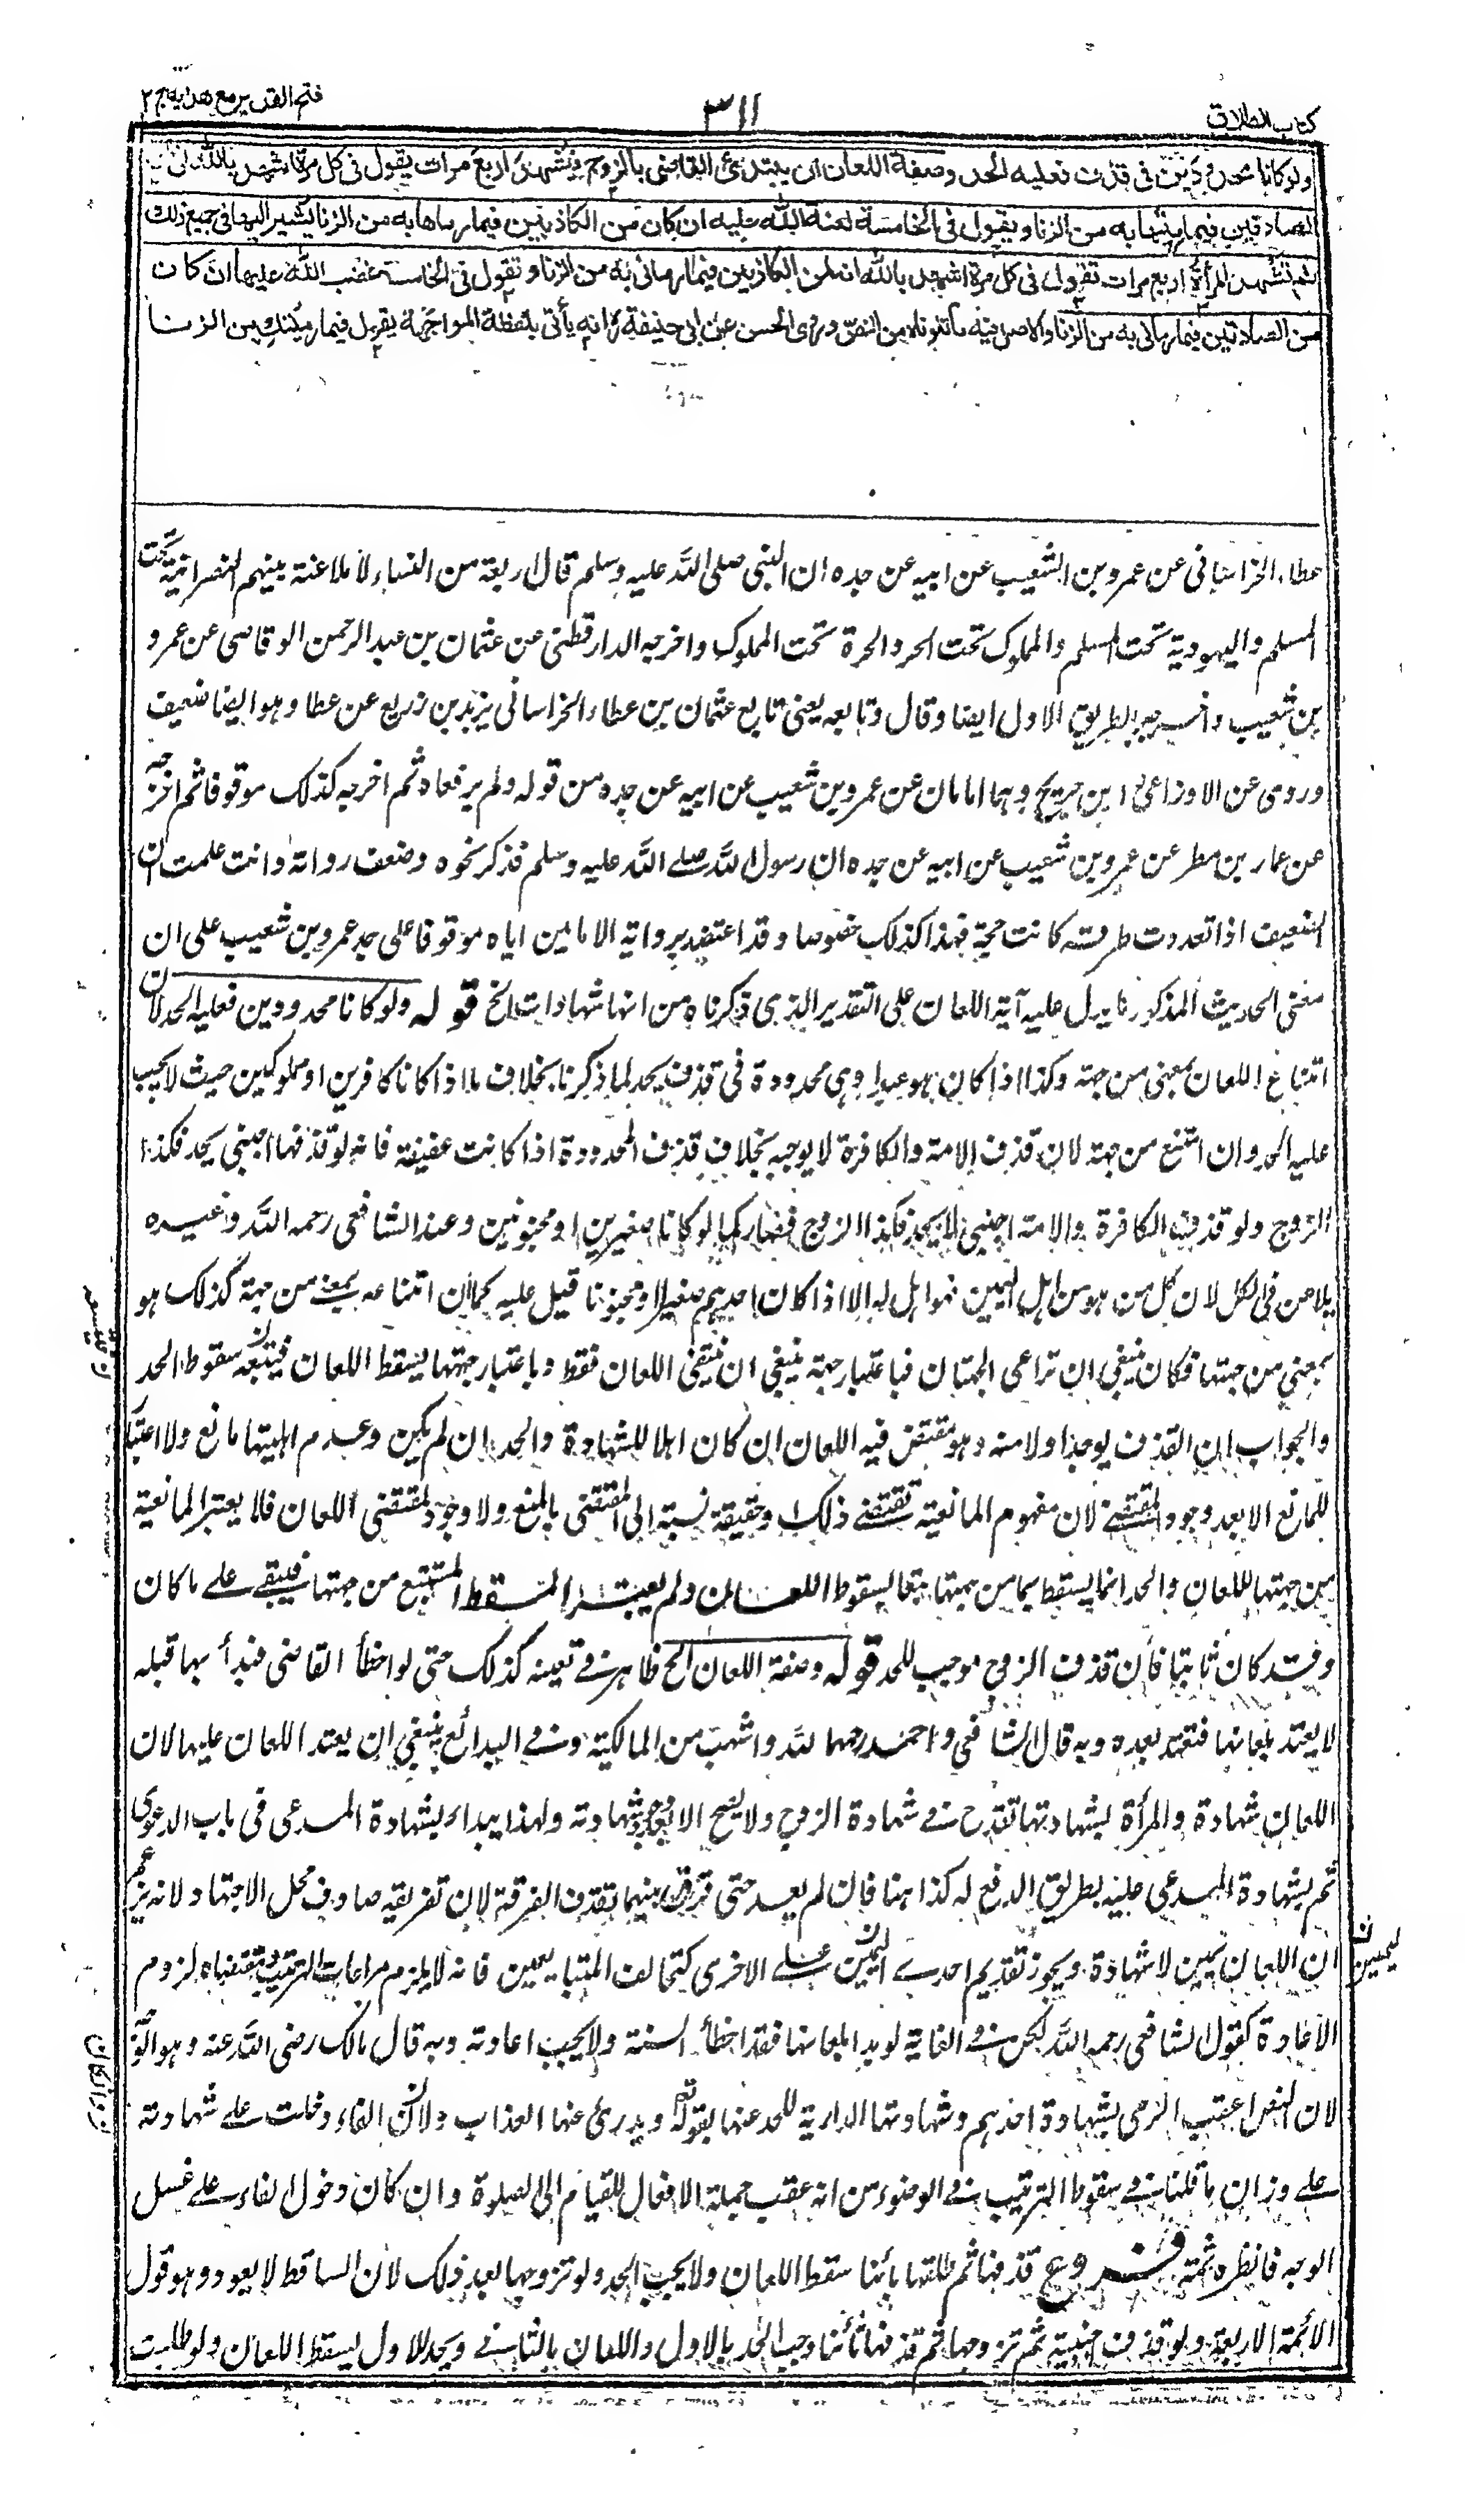 كتاب الطلاق
٣١١
فتح القدير مع هدايه ج ٢
ولو كانا محدودين فى قذف فعليه الحد وصفة اللعان ان يبتدئ القاضى بالزوج فيشهد اربع مرات يقول فى كل مرة اشهد بالله انى لمن
الصادقين فيما رميتها به من الزنا ويقول فى الخامسة لعنة الله عليه ان كان من الكاذبين فيما رماها به من الزنا يشير اليها فى جميع ذلك
ثم تشهد المرأة اربع مرات تقول فى كل مرة اشهد بالله انه لمن الكاذبين فيما رمانى به من الزنا وتقول فى الخامسة غضب الله عليها ان كان
من الصادقين فيما رمانى به من الزنا والاصل فيه ما تلوناه من النص وروى الحسن عن ابى حنيفة رح انه يأتى بلفظة المواجهة يقول فيما رميتك به من الزنا
عطاء الخراسانى عن عمرو بن الشعيب عن ابيه عن جده ان النبى صلى الله عليه وسلم قال اربعة من النساء لا ملاعنة بينهم النصرانية تحت
المسلم واليهودية تحت المسلم والمملوك تحت الحر والحرة تحت المملوك واخرجه الدارقطنى عن عثمان بن عبد الرحمن الوقاصى عن عمرو
بن شعيب واخرجه بالطريق الاول ايضا وقال وتابعه يعنى تابع عثمان بن عطاء الخراسانى يزيد بن زريع عن عطا وهو ايضا ضعيف
وروى عن الاوزاعى وابن جريج وهما امامان عن عمرو بن شعيب عن ابيه عن جده من قوله ولم يرفعاه ثم اخرجه كذلك موقوفا ثم اخرجه
عن عمار بن مطر عن عمرو بن شعيب عن ابيه عن جده ان رسول الله صلے الله عليه وسلم فذكر نحوه وضعف رواته وانت علمت ان
الضعيف اذا تعددت طرقه كانت حجة فهذا كذلك خصوصا وقد اعتضد برواية الامامين اياه موقوفا على جد عمرو بن شعيب على ان
معنى الحديث المذكور مما يدل عليه آية اللعان على التقدير الذى ذكرناه من انها شهادات الخ قوله ولو كانا محدودين فعليه الحد لان
امتناع اللعان بمعنى من جهته وكذا اذا كان هو عبدا وهى محدودة فى قذف يحد لما ذكرنا بخلاف ما اذا كانا كافرين او مملوكين حيث لا يجب
عليه الحد وان امتنع من جهته لان قذف الامة والكافرة لا يوجبه بخلاف قذف المحدودة اذا كانت عفيفة فانه لو قذفها اجنبى يحد فكذا
الزوج ولو قذف الكافرة والامة اجنبى لا يحد فكذا الزوج فصار كما لو كانا صغيرين او مجنونين وعند الشافعى رحمه الله وغيره
يلاعن فى الكل لان كل من هو من اهل اليمين فهو اهل له الا اذا كان احدهم صغيرا او مجنونا قيل عليه كما ان امتناعه بمعنے من جهته كذلك هو
بمعنى من جهتها فكان ينبغى ان تراعى الجهتان فباعتبار جهته ينبغى ان ينتفى اللعان فقط وباعتبار جهتها يسقط اللعان فيتبعه سقوط الحد
والجواب ان القذف يوجد اولا منه وهو مقتض فيه اللعان ان كان اهلا للشهادة والحد ان لم يكن وعدم اهليتها مانع ولا اعتبار
للمانع الا بعد وجود المقتضے لان مفهوم المانعية تقتضے ذلك اذ حقيقة نسبة الى المقتضى بالمنع ولا وجود لمقتضى اللعان فلا يعتبر المانعية
من جهتها للعان والحد انما يسقط بما من جهتها تبعا لسقوط اللعان ولم يعتبر المسقط المستتبع من جهتها فيبقى علے ما كان
وقد كان ثابتا فان قذف الزوج موجب للحد قوله وصفة اللعان الخ ظاهر فے تعينه كذلك حتى لو اخطأ القاضى فبدأ بها قبله
لا يعتد بلعانها فتعيد بعده وبه قال الشافعى واحمد رحمهما الله واشهب من المالكية وفے البدائع ينبغى ان يعتد اللعان عليها لان
اللعان شهادة والمرأة بشهادتها تقدح فے شهادة الزوج ولا يصح الا بعد وجود شهادته ولهذا يبداء بشهادة المدعى فى باب الدعوى
ثم بشهادة المدعى عليه بطريق الدفع له كذا هنا فان لم يعد حتى فرق بينهما نفذت الفرقة لان تفريقه صادف محل الاجتهاد لانه يزعم
ان اللعان يمين لا شهادة ويجوز تقديم احدے اليمينين علے الاخرى كتحالف المتبايعين فانه لا يلزم مراعات الترتيب ومقتضاه لزوم
الاعادة كقول الشافعى رحمه الله لكن فے الغاية لو بدا بلعانها فقد اخطأ السنة ولا يجب اعادته وبه قال مالك رضى الله عنه وهو الوجه
لان النص اعقب الرمى بشهادة احدهم وشهادتها الدارية للحد عنها بقوله تعا ويدرئ عنها العذاب ولان الفاء دخلت علے شهادته
علے وزان ما قلنا فے سقوط الترتيب فے الوضوء من انه عقب جملة الافعال للقيام الى الصلوة وان كان دخول الفاء علے غسل
الوجه فانظره ثمة فروع قذفها ثم طلقها بائنا سقط اللعان ولا يجب الحد ولو تزوجها بعد ذلك لان الساقط لا يعود وهو قول
الائمة الاربعة ولو قذف اجنبية ثم تزوجها ثم قذفها ثانيا وجب الحد بالاول واللعان بالثانے ويحد للاول ليسقط اللعان ولو طلبت